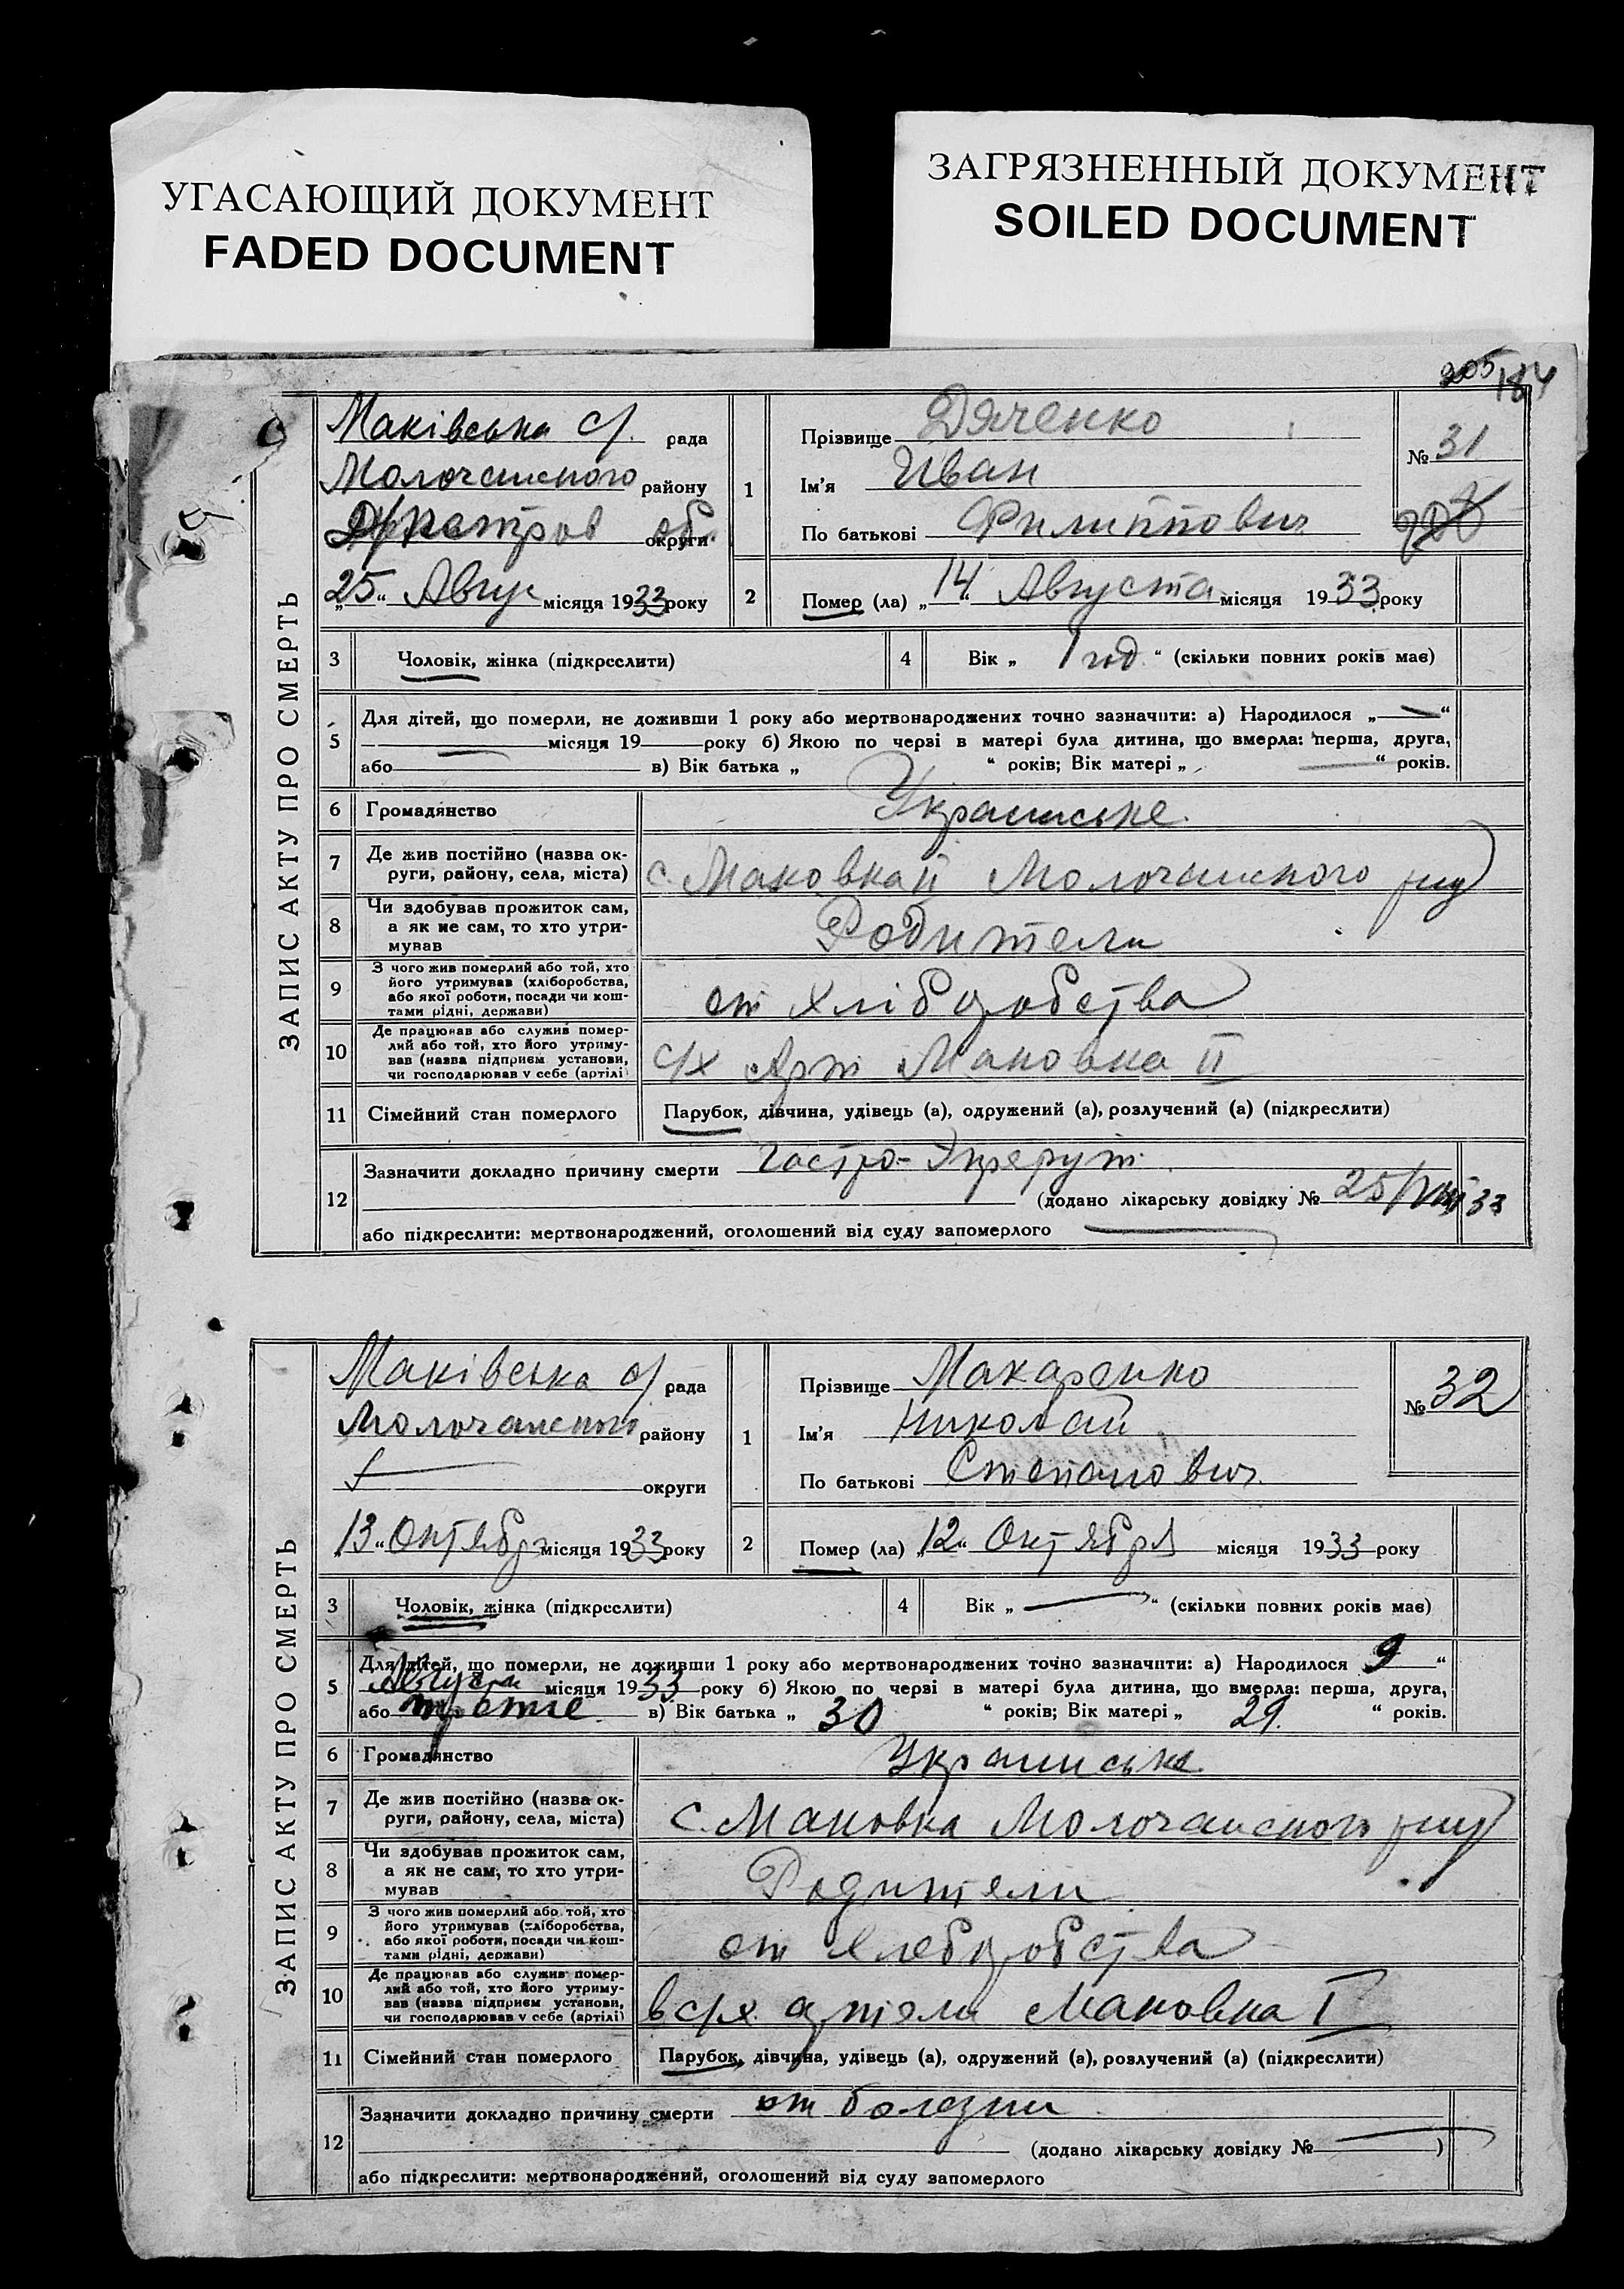 УГАСАЮЩИЙ ДОКУМЕНТ
FADED DOCUMENT
ЗАГРЯЗНЕННЫЙ ДОКУМЕНТ
SOILED DOCUMENT
205 184
ЗАПИС АКТУ ПРО СМЕРТЬ
Маківська с/ рада
Молочанського району
округи
„25“ Авгус місяця 1933 року
1
Прізвище Дяченко
Ім'я Иван
По батькові Филиппович
№ 31
2 Помер (ла) „14“ Августа місяця 1933 року
3 Чоловік, жінка (підкреслити)
4 Вік „ 1 год “ (скільки повних років має)
5 Для дітей, що померли, не доживши 1 року або мертвонароджених точно зазначити: а) Народилося „ — “
місяця 19 року б) Якою по черзі в матері була дитина, що вмерла: перша, друга,
або в) Вік батька „ “ років; Вік матері „ “ років.
6 Громадянство Украинське
7 Де жив постійно (назва ок-
руги, району, села, міста) с. Маковка II Молочанского
8 Чи здобував прожиток сам,
а як не сам, то хто утри-
мував Родители
9 З чого жив померлий або той, хто
його утримував (хліборобства,
або якої роботи, посади чи кош-
тами рідні, держави) от хліборобства
10 Де працював або служив помер-
лий або той, хто його утриму-
вав (назва підприєм установи,
чи господарював у себе (артілі) с/х Арт Маковка II
11 Сімейний стан померлого Парубок, дівчина, удівець (а), одружений (а), розлучений (а) (підкреслити)
12 Зазначити докладно причину смерти Гастро-
(додано лікарську довідку № 25/VIII 33
або підкреслити: мертвонароджений, оголошений від суду запомерлого
ЗАПИС АКТУ ПРО СМЕРТЬ
Маківська с/ рада
Молочанського району
округи
„13“ Октября місяця 1933 року
1
Прізвище Макаренко
Ім'я Николай
По батькові Степанович
№ 32
2 Помер (ла) „12“ Октября місяця 1933 року
3 Чоловік, жінка (підкреслити)
4 Вік „ — “ (скільки повних років має)
5 Для дітей, що померли, не доживши 1 року або мертвонароджених точно зазначити: а) Народилося 9 “
Августа місяця 1933 року б) Якою по черзі в матері була дитина, що вмерла: перша, друга,
або третє в) Вік батька „ 30 “ років; Вік матері „ 29. “ років.
6 Громадянство Украинське
7 Де жив постійно (назва ок-
руги, району, села, міста) с. Маковка Молочанского
8 Чи здобував прожиток сам,
а як не сам, то хто утри-
мував Родители
9 З чого жив померлий або той, хто
його утримував (хліборобства,
або якої роботи, посади чи кош-
тами рідні, держави) от хлеборобства
10 Де працював або служив помер-
лий або той, хто його утриму-
вав (назва підприєм установи,
чи господарював у себе (артілі) в с/х артели Маковка I
11 Сімейний стан померлого Парубок, дівчина, удівець (а), одружений (а), розлучений (а) (підкреслити)
12 Зазначити докладно причину смерти от болезни
(додано лікарську довідку № — )
або підкреслити: мертвонароджений, оголошений від суду запомерлого